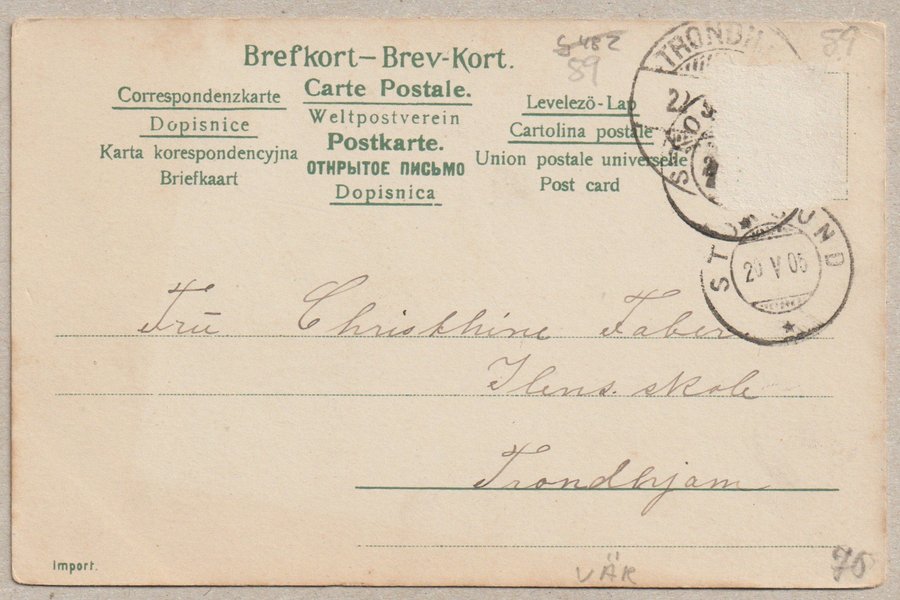 Brefkort–Brev-Kort.
Correspondenzkarte
Dopisnice
Karta korespondencyjna
Briefkaart
Carte Postale.
Weltpostverein
Postkarte.
ОТКРЫТОЕ ПИСЬМО
Dopisnica
Levelező-Lap
Cartolina postale
Union postale universelle
Post card
59
59
TRONDHJ
ST SUND
V 05
Frū Christhine Faber.
Ilens. skole
Trondhjam
Import.
VÄR
75